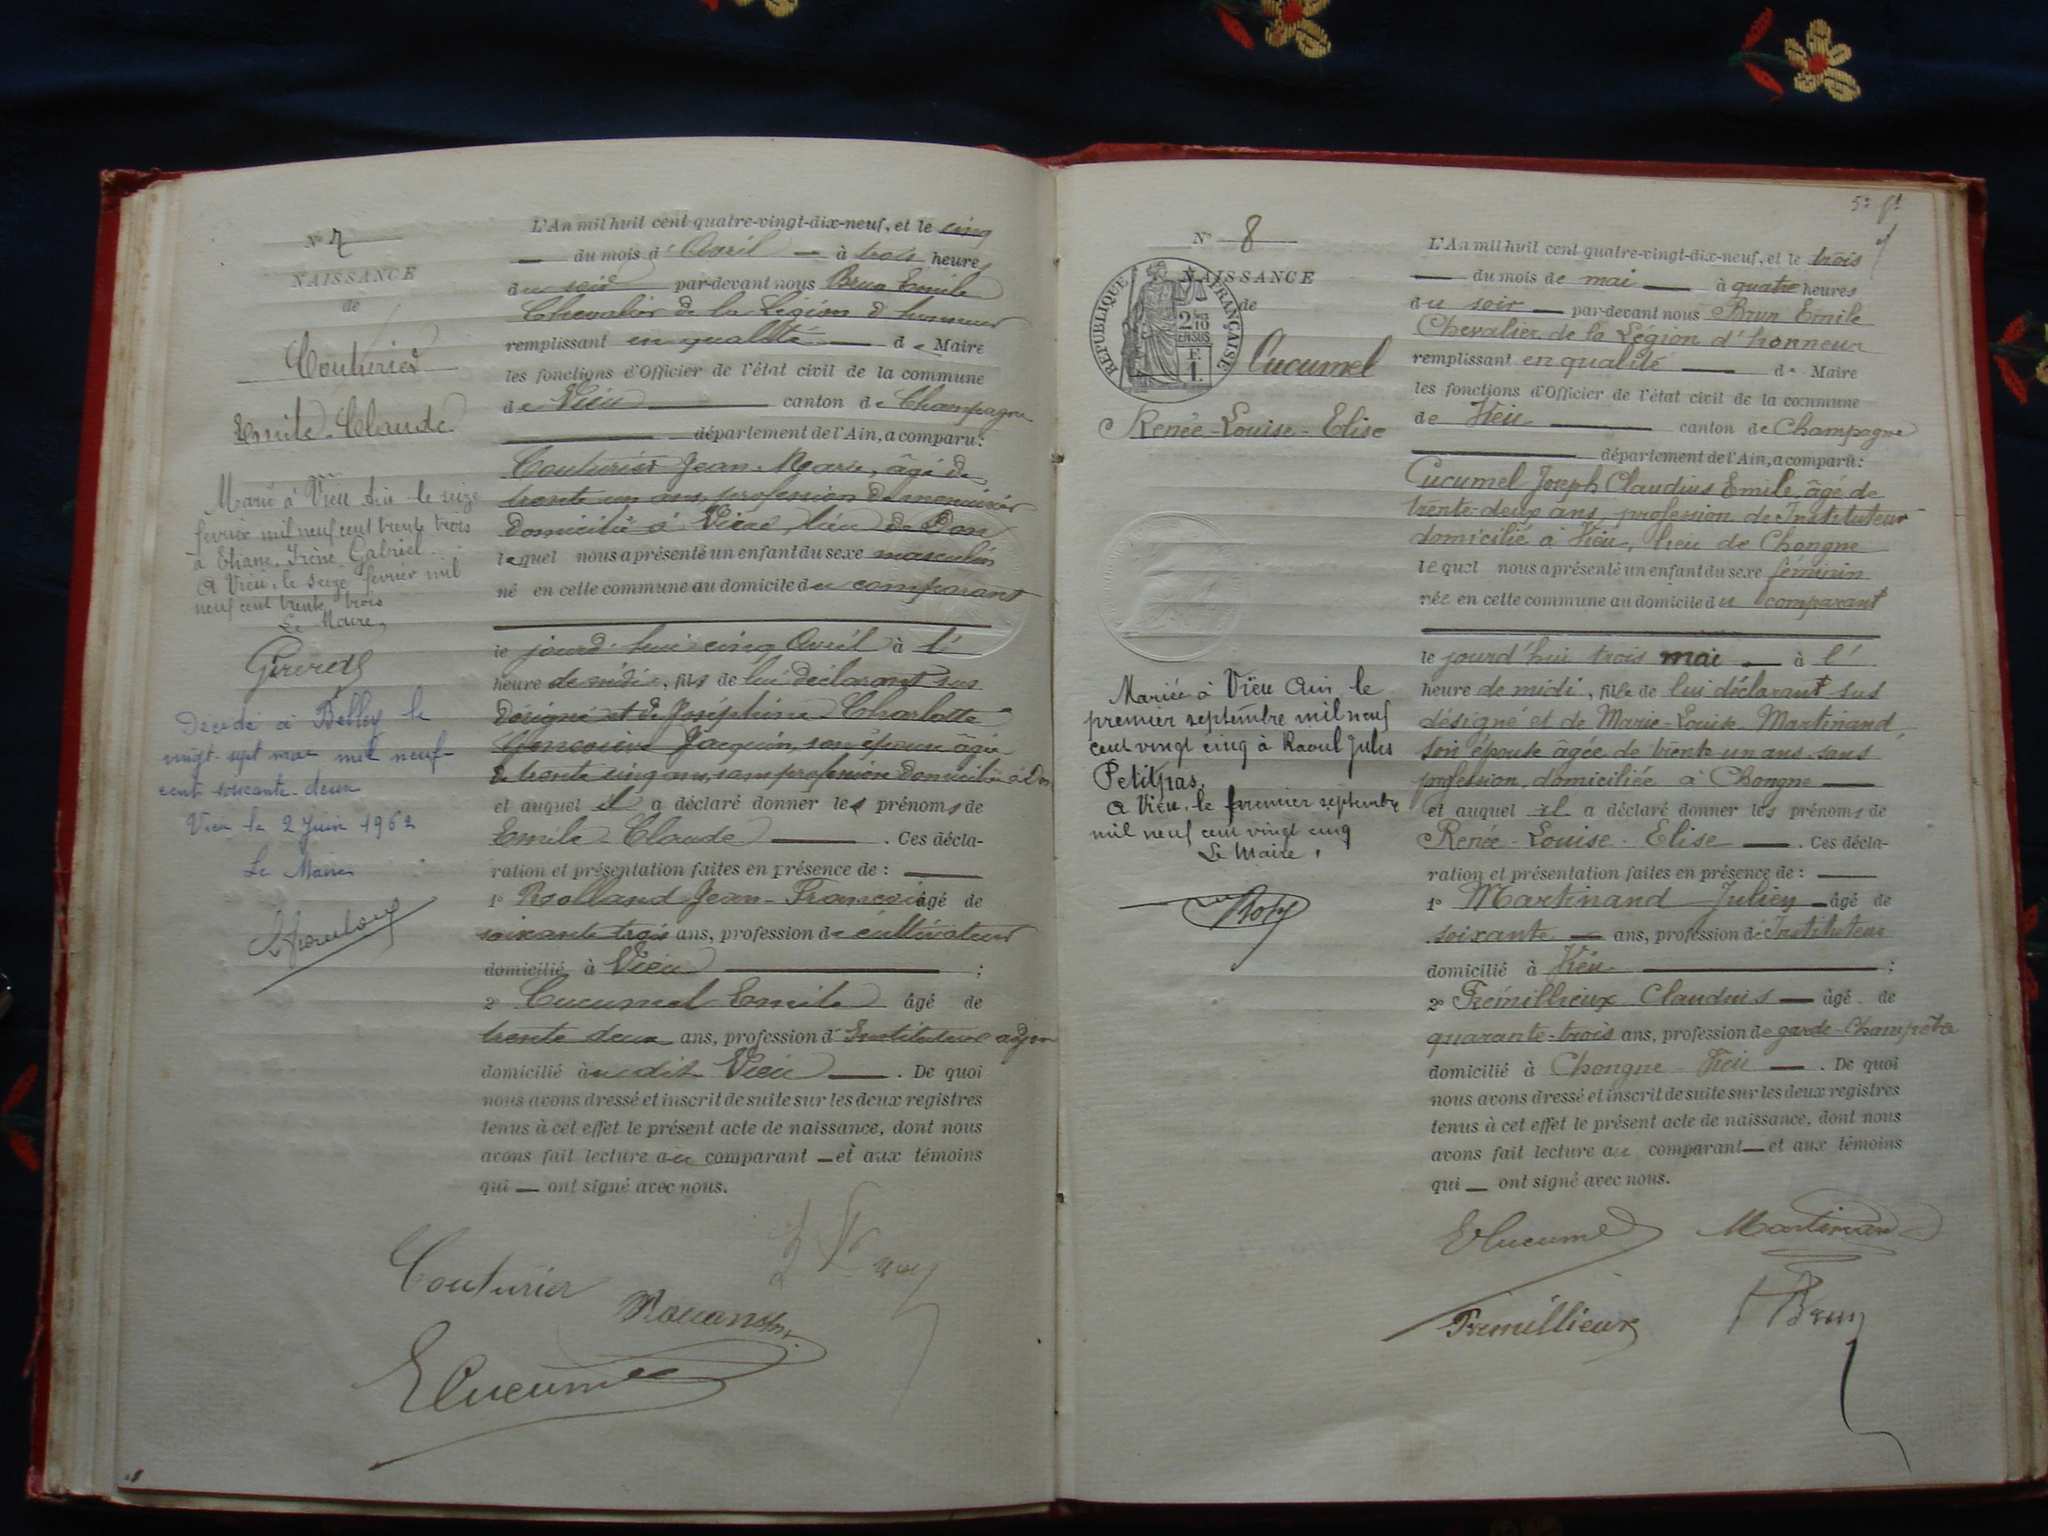 N° 7
NAISSANCE
de
Couturier
Emile-Claude
Marié à Vieu Ain le seize
fevrier mil neuf cent trente trois
à Irène Gabriel
A Vieu, le seize fevrier mil
neuf cent trente trois
Le Maire,
Decédé à Belley le
vingt-sept mai mil neuf
cent soixante-deux
Vieu le 2 Juin 1962
Le Maire
L'An mil huit cent quatre-vingt-dix-neuf, et le cinq
du mois d'Avril à trois heures
du soir par-devant nous Brun Emile
Chevalier de la Légion d'honneur
remplissant en qualité de Maire
les fonctions d'Officier de l'état civil de la commune
de Vieu canton de Champagne
département de l'Ain, a comparu:
Couturier Jean-Marie, âgé de
trente un ans, profession de menuisier
domicilié à Vieu, lieu de Don
lequel nous a présenté un enfant du sexe masculin
né en cette commune au domicile du comparant
le jourd'hui cinq Avril à l'
heure de midi, fils de lui déclarant sus
désigné et de Joséphine Charlotte
Jacquin, son épouse âgée
de trente cinq ans, sans profession domiciliée à Don
et auquel il a déclaré donner les prénoms de
Emile-Claude. Ces décla-
ration et présentation faites en présence de:
1° Rolland Jean-François âgé de
soixante trois ans, profession de cultivateur
domicilié à Vieu;
2° Cucumel Emile âgé de
trente deux ans, profession d'Instituteur
domicilié au dit Vieu. De quoi
nous avons dressé et inscrit de suite sur les deux registres
tenus à cet effet le présent acte de naissance, dont nous
avons fait lecture au comparant et aux témoins
qui ont signé avec nous.
Couturier
ECucumel
N° 8
NAISSANCE
de
RÉPUBLIQUE FRANÇAISE
Cucumel
Renée-Louise-Elise
Mariée à Vieu Ain le
premier septembre mil neuf
cent vingt cinq à Raoul Jules
Petitpas.
A Vieu, le premier septembre
mil neuf cent vingt cinq
Le Maire,
L'An mil huit cent quatre-vingt-dix-neuf, et le trois
du mois de mai à quatre heures
du soir par-devant nous Brun Emile
Chevalier de la Légion d'honneur
remplissant en qualité de Maire
les fonctions d'Officier de l'état civil de la commune
de Vieu canton de Champagne
département de l'Ain, a comparu:
Cucumel Joseph Claudius Emile, âgé de
trente-deux ans, profession de Instituteur
domicilié à Vieu, lieu de Chongne
lequel nous a présenté un enfant du sexe féminin
née en cette commune au domicile du comparant
le jourd'hui trois mai à l'
heure de midi, fille de lui déclarant sus
désigné et de Marie-Louise Martinand,
son épouse âgée de trente un ans sans
profession, domiciliée à Chongne
et auquel il a déclaré donner les prénoms de
Renée-Louise-Elise. Ces décla-
ration et présentation faites en présence de:
1° Martinand Julien âgé de
soixante ans, profession de Instituteur
domicilié à Vieu;
2° Frémillieux Claudius âgé de
quarante-trois ans, profession de garde-Champêtre
domicilié à Chongne-Vieu. De quoi
nous avons dressé et inscrit de suite sur les deux registres
tenus à cet effet le présent acte de naissance, dont nous
avons fait lecture au comparant et aux témoins
qui ont signé avec nous.
ECucumel Martinand
Fremillieux Brun